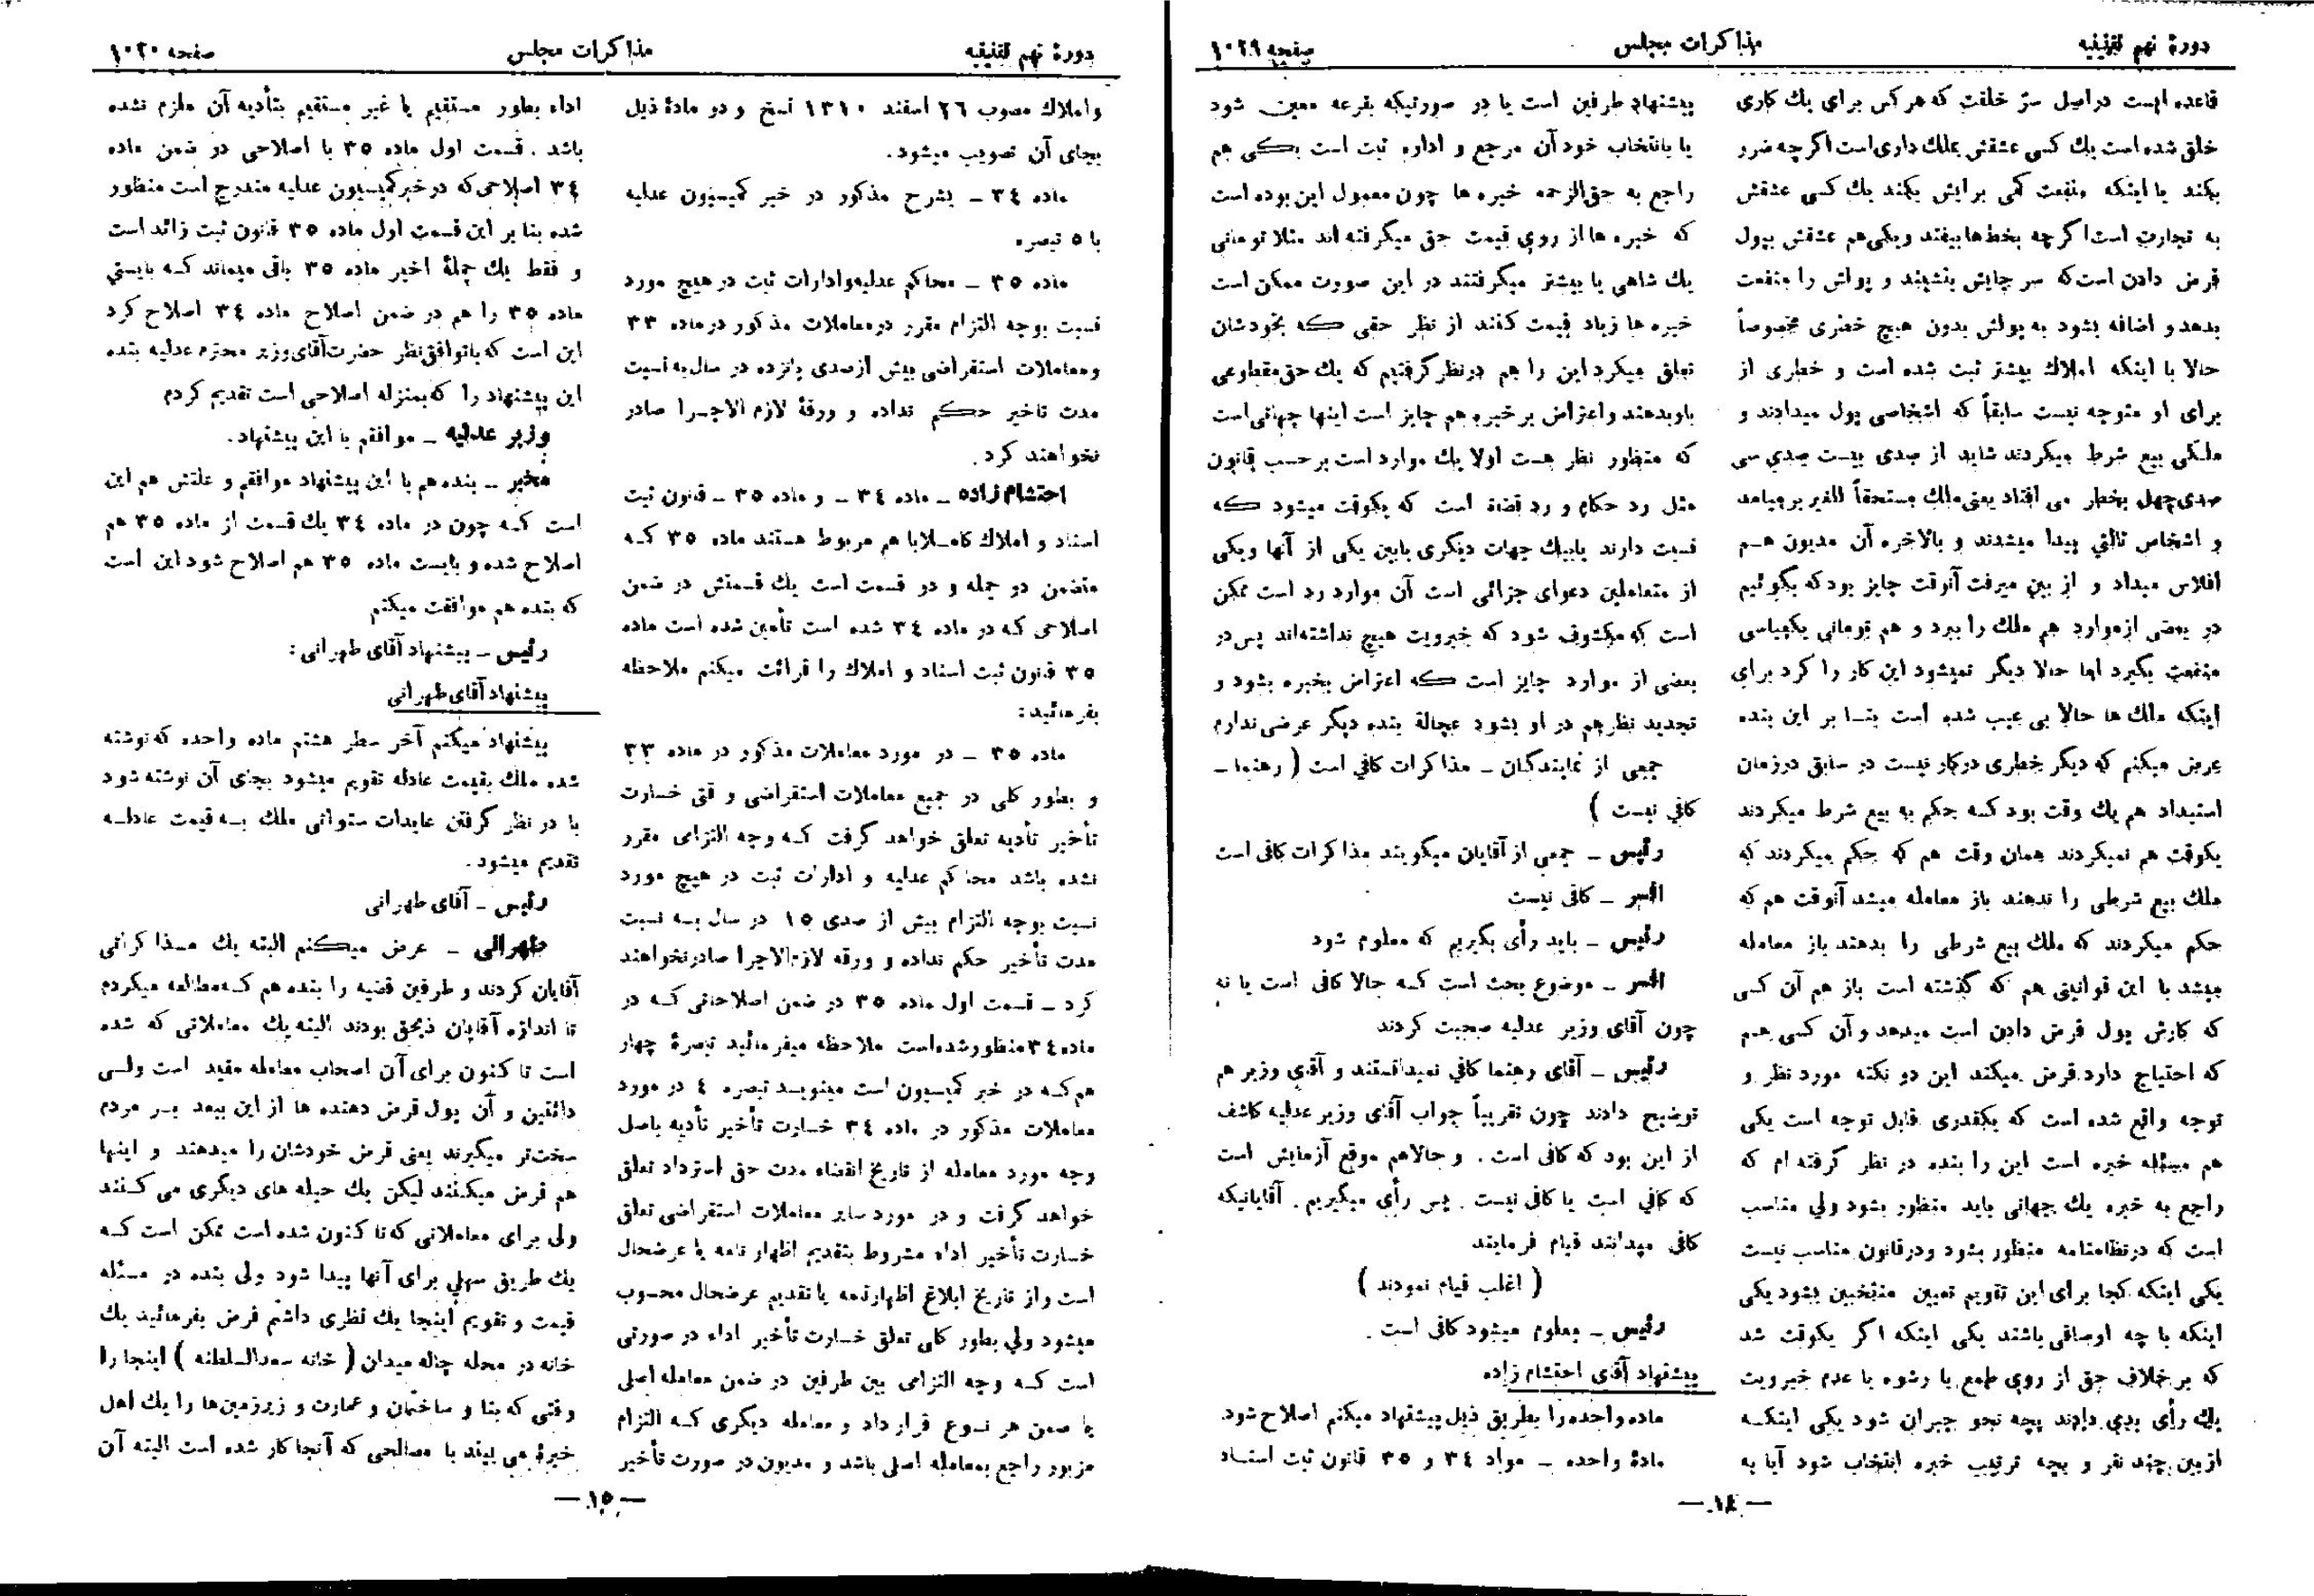 دورهٔ نهم تقنینیه
مذاکرات مجلس
صفحه ۱۰۲۹
قاعده ایست در اصل سرّ خلقت که هر کس برای یك کاری
خلق شده است یك کسی عشقش بملك داری است اگر چه ضرر
بکند یا اینکه منفعت کمی برایش بکند یك کسی عشقش
به تجارت است اگر چه بخطرها بیفتد و یکی هم عشقش بپول
قرض دادن است که سر جایش بنشیند و پولش را منفعت
بدهد و اضافه بشود به پولش بدون هیچ خطری مخصوصاً
حالا با اینکه املاك بیشتر ثبت شده است و خطری از
برای او متوجه نیست سابقاً که اشخاصی پول میدادند و
ملکی بیع شرط میکردند شاید از صدی بیست صدی سی
صدی چهل بخطر می افتاد یعنی ملك مستحقاً للغیر برمیامد
و اشخاص ثالثی پیدا میشدند و بالاخره آن مدیون هم
افلاس میداد و از بین میرفت آنوقت جایز بود که بگوئیم
در بعضی از موارد هم ملك را ببرد و هم تومانی یکعباسی
منفعت بگیرد اما حالا دیگر نمیشود این کار را کرد برای
اینکه ملك ها حالا بی عیب شده است بنا بر این بنده
عرض میکنم که دیگر خطری درکار نیست در سابق در زمان
استبداد هم یك وقت بود که حکم به بیع شرط میکردند
یکوقت هم نمیکردند همان وقت هم که حکم میکردند که
ملك بیع شرطی را ندهند باز معامله میشد آنوقت هم که
حکم میکردند که ملك بیع شرطی را بدهند باز معامله
میشد با این قوانینی هم که گذشته است باز هم آن کسی
که کارش پول قرض دادن است میدهد و آن کسی هم
که احتیاج دارد قرض میکند این دو نکته مورد نظر و
توجه واقع شده است که یکقدری قابل توجه است یکی
هم مسئله خبره است این را بنده در نظر گرفته ام که
راجع به خبره یك جهاتی باید منظور بشود ولی مناسب
است که در نظامنامه منظور بشود و در قانون مناسب نیست
یکی اینکه کجا برای این تقویم تعیین منتخبین بشود یکی
اینکه با چه اوصافی باشند یکی اینکه اگر یکوقت شد
که بر خلاف حق از روی طمع یا رشوه یا عدم خبرویت
یك رأی بدی دادند بچه نحو جبران شود یکی اینکه
از بین چند نفر و بچه ترتیب خبره انتخاب شود آیا به
پیشنهاد طرفین است یا در صورتیکه بقرعه معین شود
یا بانتخاب خود آن مرجع و اداره ثبت است یکی هم
راجع به حق‌الزحمه خبره ها چون معمول این بوده است
که خبره ها از روی قیمت حق میگرفته اند مثلا تومانی
یك شاهی یا بیشتر میگرفتند در این صورت ممکن است
خبره ها زیاد قیمت کنند از نظر حقی که بخودشان
تعلق میگیرد این را هم در نظر گرفتیم که یك حق مقطوعی
باو بدهند و اعتراض بر خبره هم جایز است اینها جهاتی است
که منظور نظر هست اولا یك موارد است بر حسب قانون
مثل رد حکام و رد قضاة است که یکوقت میشود که
نسبت دارند یا بیك جهات دیگری یا بین یکی از آنها و یکی
از متعاملین دعوای جزائی است آن موارد رد است ممکن
است که مکشوف شود که خبرویت هیچ نداشته‌اند پس در
بعضی از موارد جایز است که اعتراض بخبره بشود و
تجدید نظر هم در او بشود عجالة بنده دیگر عرضی ندارم
جمعی از نمایندگان ـ مذاکرات کافی است ( رهنما ـ
کافی نیست )
رئیس ـ جمعی از آقایان میگویند مذاکرات کافی است
افسر ـ کافی نیست
رئیس ـ باید رأی بگیریم که معلوم شود
افسر ـ موضوع بحث است که حالا کافی است یا نه
چون آقای وزیر عدلیه صحبت کردند
رئیس ـ آقای رهنما کافی نمیدانستند و آقای وزیر هم
توضیح دادند چون تقریباً جواب آقای وزیر عدلیه کاشف
از این بود که کافی است . و حالا هم موقع آزمایش است
که کافی است یا کافی نیست . پس رأی میگیریم . آقایانیکه
کافی میدانند قیام فرمایند
( اغلب قیام نمودند )
رئیس ـ معلوم میشود کافی است .
پیشنهاد آقای احتشام زاده
ماده واحده را بطریق ذیل پیشنهاد میکنم اصلاح شود.
مادهٔ واحده ـ مواد ۳۴ و ۳۵ قانون ثبت اسناد
— ۱۴ —
دورهٔ نهم تقنینیه
مذاکرات مجلس
صفحه ۱۰۳۰
و املاك مصوب ۲۶ اسفند ۱۳۱۰ نسخ و دو مادهٔ ذیل
بجای آن تصویب میشود.
ماده ۳۴ ـ بشرح مذکور در خبر کمیسیون عدلیه
با ۵ تبصره
ماده ۳۵ ـ محاکم عدلیه و ادارات ثبت در هیچ مورد
نسبت بوجه التزام مقرر در معاملات مذکور در ماده ۳۳
و معاملات استقراضی بیش از صدی پانزده در سال به نسبت
مدت تاخیر حکم نداده و ورقهٔ لازم الاجرا صادر
نخواهند کرد.
احتشام زاده ـ ماده ۳۴ ـ و ماده ۳۵ ـ قانون ثبت
اسناد و املاك کاملا با هم مربوط هستند ماده ۳۵ که
متضمن دو جمله و دو قسمت است یك قسمتش در ضمن
اصلاحی که در ماده ۳۴ شده است تأمین شده است ماده
۳۵ قانون ثبت اسناد و املاك را قرائت میکنم ملاحظه
بفرمائید:
ماده ۳۵ ـ در مورد معاملات مذکور در ماده ۳۳
و بطور کلی در جمیع معاملات استقراضی وقتی خسارت
تأخیر تأدیه تعلق خواهد گرفت که وجه التزامی مقرر
نشده باشد محاکم عدلیه و ادارات ثبت در هیچ مورد
نسبت بوجه التزام بیش از صدی ۱۵ در سال به نسبت
مدت تأخیر حکم نداده و ورقه لازم‌الاجرا صادر نخواهند
کرد ـ قسمت اول ماده ۳۵ در ضمن اصلاحاتی که در
ماده ۳۴ منظور شده‌است ملاحظه میفرمائید تبصرهٔ چهار
هم که در خبر کمیسیون است مینویسد تبصره ۴ در مورد
معاملات مذکور در ماده ۳۴ خسارت تأخیر تأدیه باصل
وجه مورد معامله از تاریخ انقضاء مدت حق استرداد تعلق
خواهد گرفت و در مورد سایر معاملات استقراضی تعلق
خسارت تأخیر اداء مشروط بتقدیم اظهار نامه یا عرضحال
است و از تاریخ ابلاغ اظهارنامه یا تقدیم عرضحال محسوب
میشود ولی بطور کلی تعلق خسارت تأخیر اداء در صورتی
است که وجه التزامی بین طرفین در ضمن معامله اصلی
یا ضمن هر نوع قرارداد و معامله دیگری که التزام
مزبور راجع بمعامله اصلی باشد و مدیون در صورت تأخیر
اداء بطور مستقیم یا غیر مستقیم بتأدیه آن ملزم نشده
باشد . قسمت اول ماده ۳۵ با اصلاحی در ضمن ماده
۳۴ اصلاحی که در خبر کمیسیون عدلیه مندرج است منظور
شده بنا بر این قسمت اول ماده ۳۵ قانون ثبت زائد است
و فقط یك جملهٔ اخیر ماده ۳۵ باقی میماند که بایستی
ماده ۳۵ را هم در ضمن اصلاح ماده ۳۴ اصلاح کرد
این است که با توافق نظر حضرت آقای وزیر محترم عدلیه بنده
این پیشنهاد را که بمنزله اصلاحی است تقدیم کردم
وزیر عدلیه ـ موافقم با این پیشنهاد.
مخبر ـ بنده هم با این پیشنهاد موافقم و علتش هم این
است که چون در ماده ۳۴ یك قسمت از ماده ۳۵ هم
اصلاح شده و بایست ماده ۳۵ هم اصلاح شود این است
که بنده هم موافقت میکنم
رئیس ـ پیشنهاد آقای طهرانی :
پیشنهاد آقای طهرانی
پیشنهاد میکنم آخر سطر هشتم ماده واحده که نوشته
شده ملك بقیمت عادله تقویم میشود بجای آن نوشته شود
با در نظر گرفتن عایدات سنواتی ملك به قیمت عادله
تقدیم میشود.
رئیس ـ آقای طهرانی
طهرانی ـ عرض میکنم البته یك مذاکراتی
آقایان کردند و طرفین قضیه را بنده هم که مطالعه میکردم
تا اندازه آقایان ذیحق بودند البته یك معاملاتی که شده
است تا کنون برای آن اصحاب معامله مفید است ولی
دائنین و آن پول قرض دهنده ها از این ببعد بر مردم
سخت‌تر میگیرند یعنی قرض خودشان را میدهند و اینها
هم قرض میکنند لیکن یك حیله های دیگری می کنند
ولی برای معاملاتی که تا کنون شده است ممکن است که
یك طریق سهلی برای آنها پیدا شود ولی بنده در مسئله
قیمت و تقویم اینجا یك نظری داشتم فرض بفرمائید یك
خانه در محله چاله میدان ( خانه سعدالسلطنه ) اینجا را
وقتی که بنا و ساختمان و عمارت و زیرزمین‌ها را یك اهل
خبرهٔ می بیند با مصالحی که آنجا کار شده است البته آن
— ۱۵ —